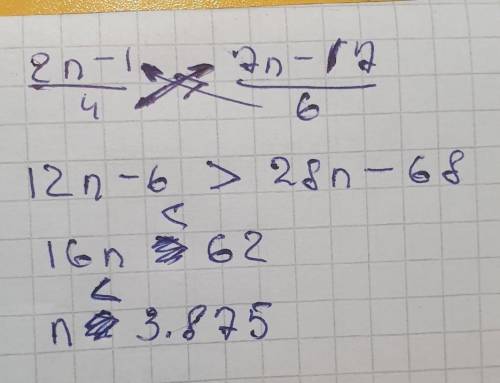 2n - 1 7n - 17
4 6
12n - 6 > 28n - 68
<
16n 62
<
n 3.875